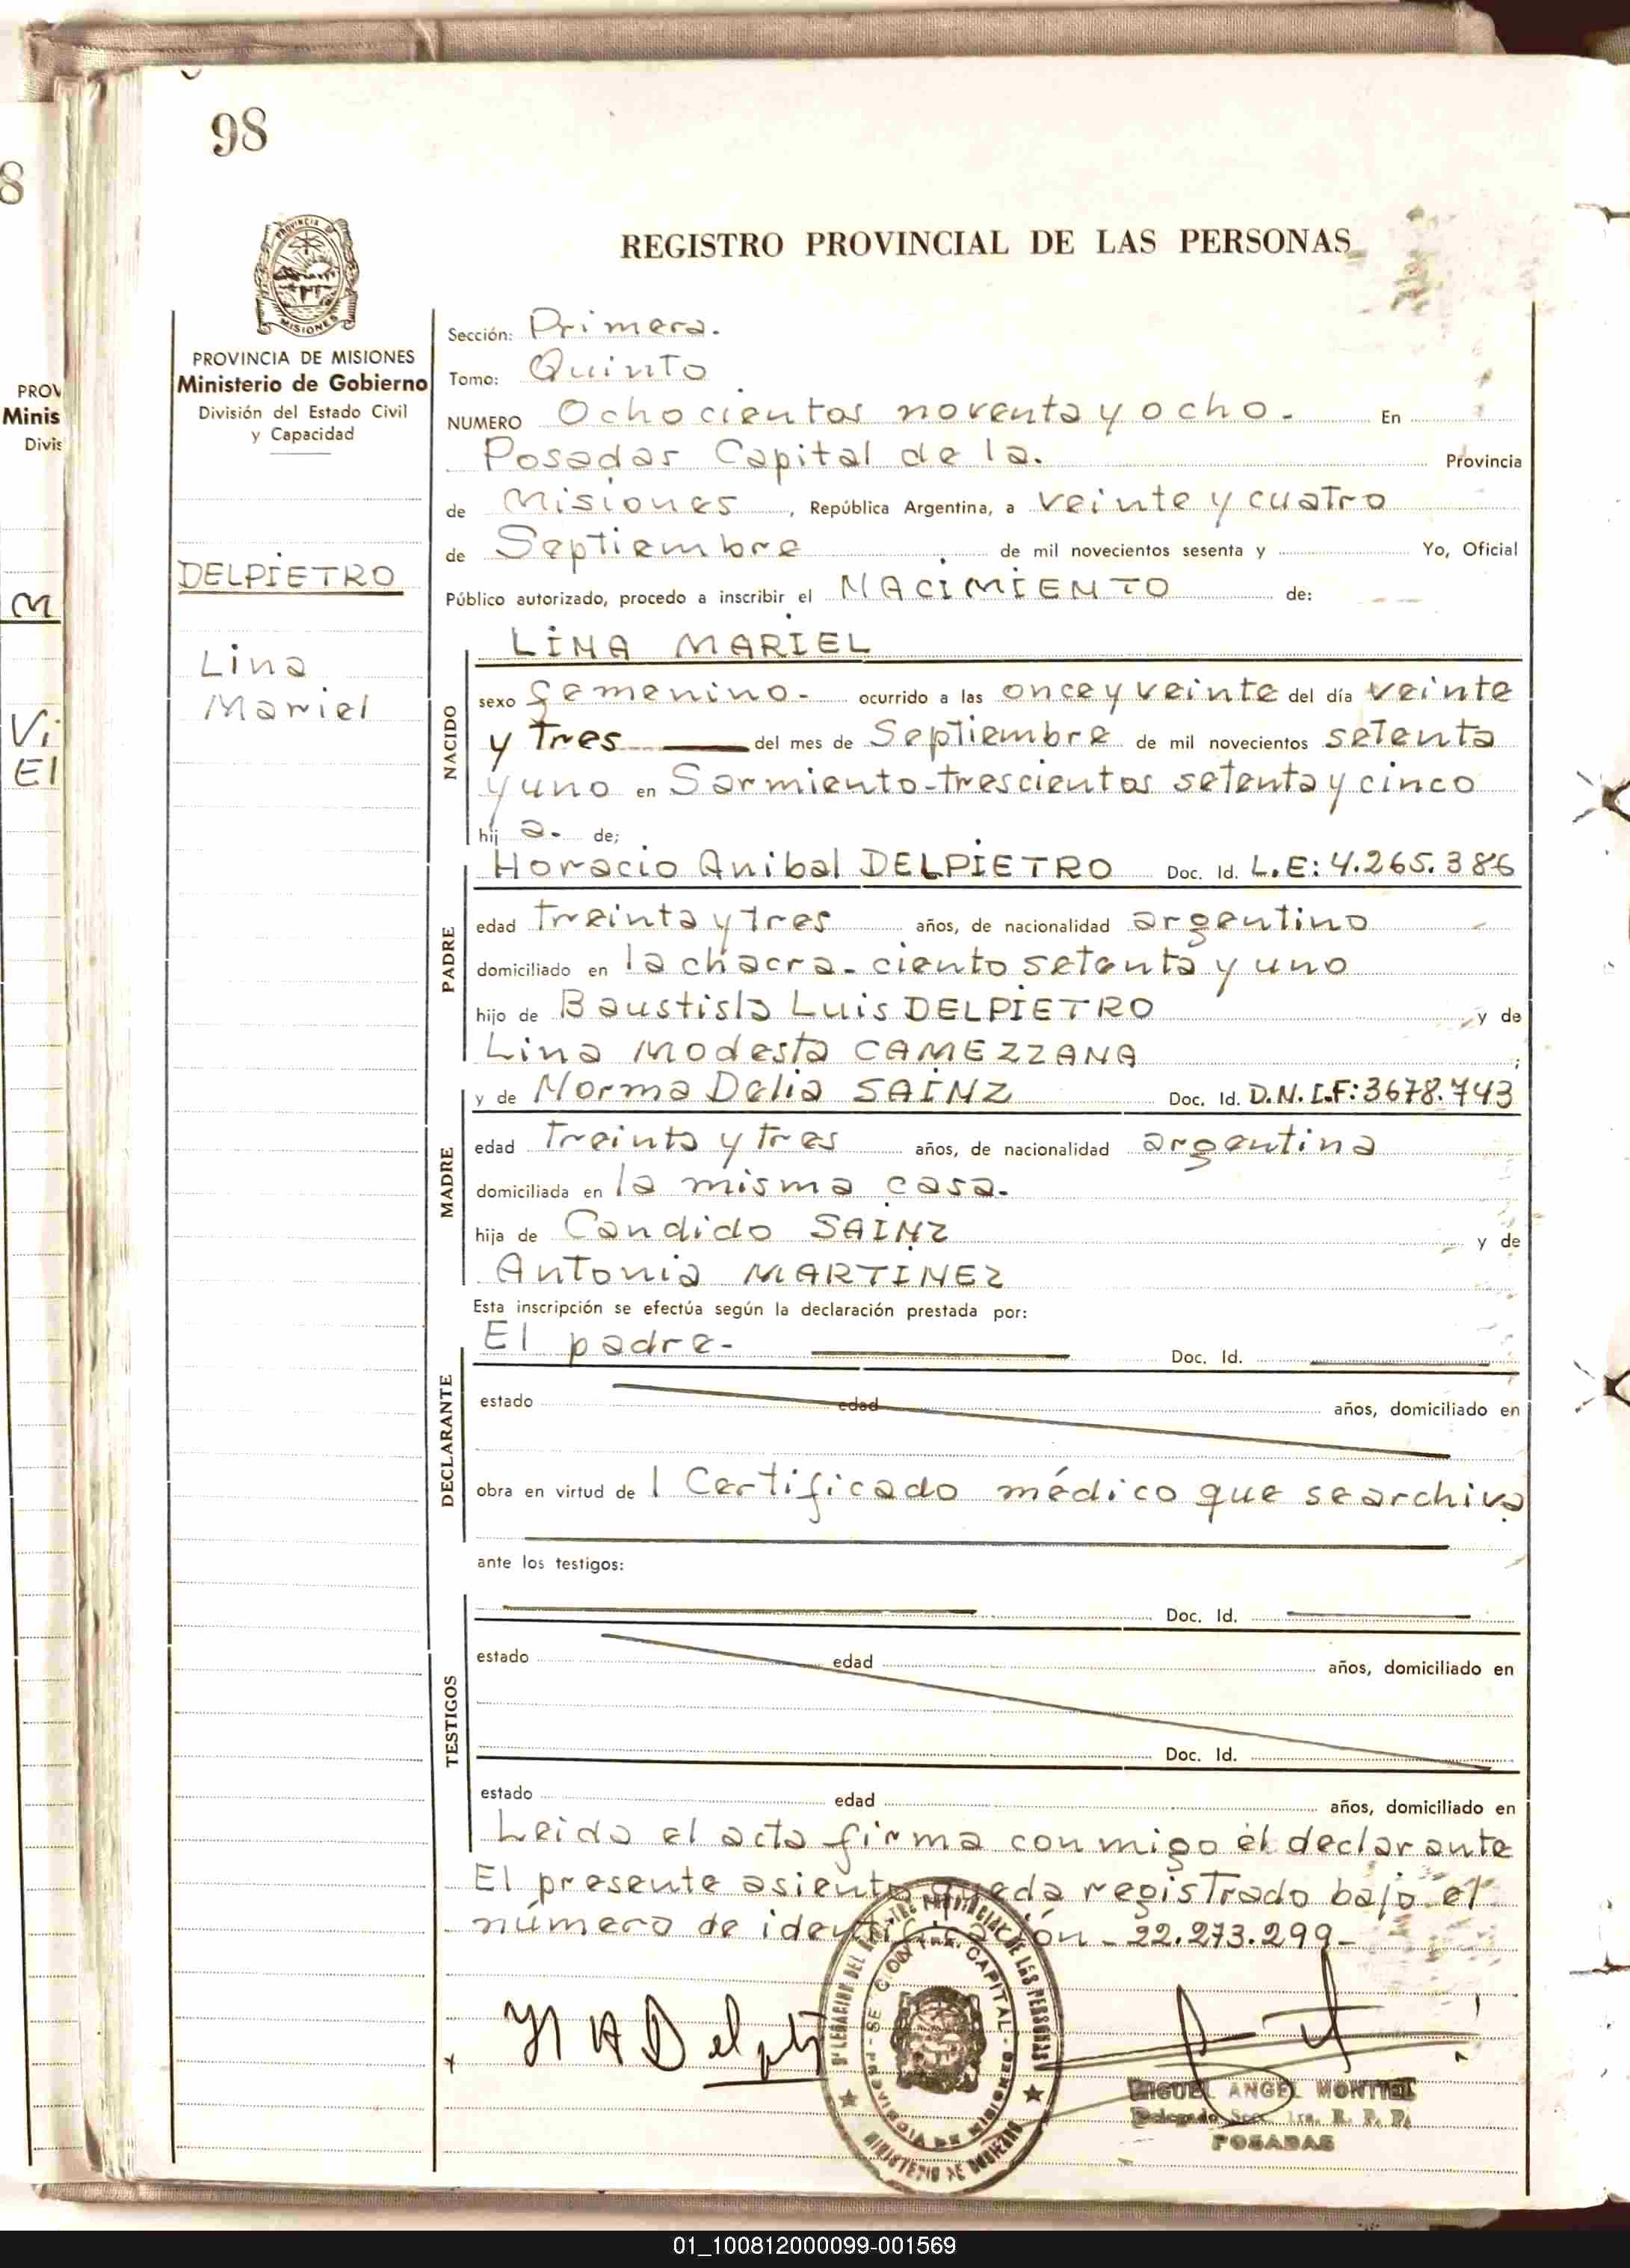 98
8
REGISTRO PROVINCIAL DE LAS PERSONAS
PROVINCIA
MISIONES
PROVINCIA DE MISIONES
Ministerio de Gobierno
División del Estado Civil
y Capacidad
PROV
Minis
Divis
M
Vi
El
DELPIETRO
Lina
Mariel
Sección: Primera.
Tomo: Quinto
NUMERO Ochocientos noventa y ocho. En
Posadas Capital de la. Provincia
de Misiones, República Argentina, a veinte y cuatro
de Septiembre de mil novecientos sesenta y Yo, Oficial
Público autorizado, procedo a inscribir el NACIMIENTO de:
LINA MARIEL
NACIDO
sexo femenino- ocurrido a las once y veinte del día veinte
y tres del mes de Septiembre de mil novecientos setenta
y uno en Sarmiento-trescientos setenta y cinco
hij a. de;
PADRE
Horacio Anibal DELPIETRO Doc. Id. L.E: 4.265.386
edad treinta y tres años, de nacionalidad argentino
domiciliado en la chacra- ciento setenta y uno
hijo de Baustista Luis DELPIETRO y de
Lina Modesta CAMEZZANA ;
MADRE
y de Norma Delia SAINZ Doc. Id. D.N.I.F: 3678.743
edad treinta y tres años, de nacionalidad argentina
domiciliada en la misma casa.
hija de Candido SAINZ y de
Antonia MARTINEZ
Esta inscripción se efectúa según la declaración prestada por:
DECLARANTE
El padre- Doc. Id.
estado edad años, domiciliado en
obra en virtud de l Certificado médico que se archiva
ante los testigos:
TESTIGOS
Doc. Id.
estado edad años, domiciliado en
Doc. Id.
estado edad años, domiciliado en
Leida el acta firma conmigo el declarante
El presente asiento queda registrado bajo el
número de identificación - 22.273.299-
H A Delpi
MINISTERIO DE GOBIERNO
MIGUEL ANGEL MONTIEL
Delegado Secc. 1ra. R. P. P.
POSADAS
01_100812000099-001569